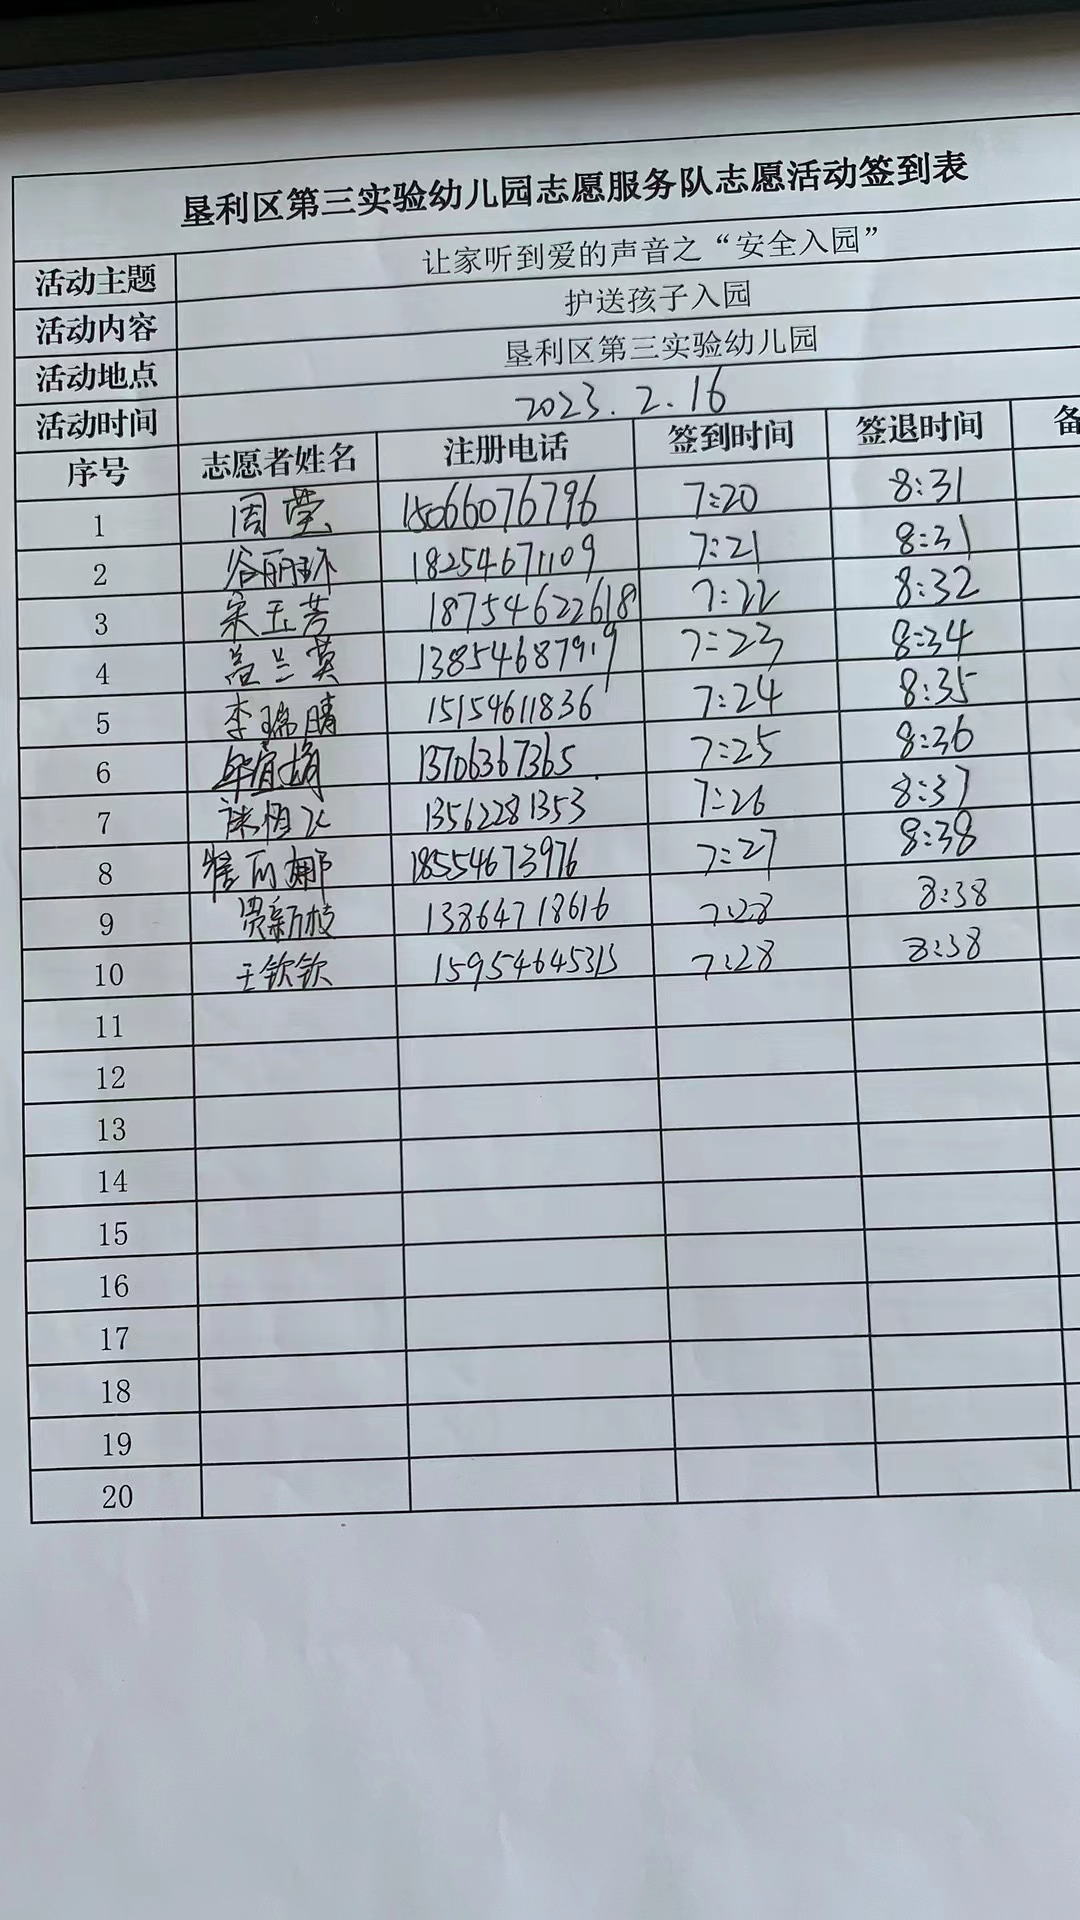 垦利区第三实验幼儿园志愿服务队志愿活动签到表
活动主题 让家听到爱的声音之“安全入园”
活动内容 护送孩子入园
活动地点 垦利区第三实验幼儿园
活动时间 2023.2.16
序号 志愿者姓名 注册电话 签到时间 签退时间 备
1 周莹 15066076796 7:20 8:31
2 谷丽环 18254671109 7:21 8:31
3 宋玉芳 18754622618 7:22 8:32
4 盖兰英 13854687919 7:23 8:34
5 李瑞晴 15154611836 7:24 8:35
6 13706367365 7:25 8:36
7 13562281353 7:26 8:37
8 18554673976 7:27 8:38
9 贾新枝 13864718616 7:28 8:38
10 王钦钦 15954645313 7:28 8:38
11
12
13
14
15
16
17
18
19
20